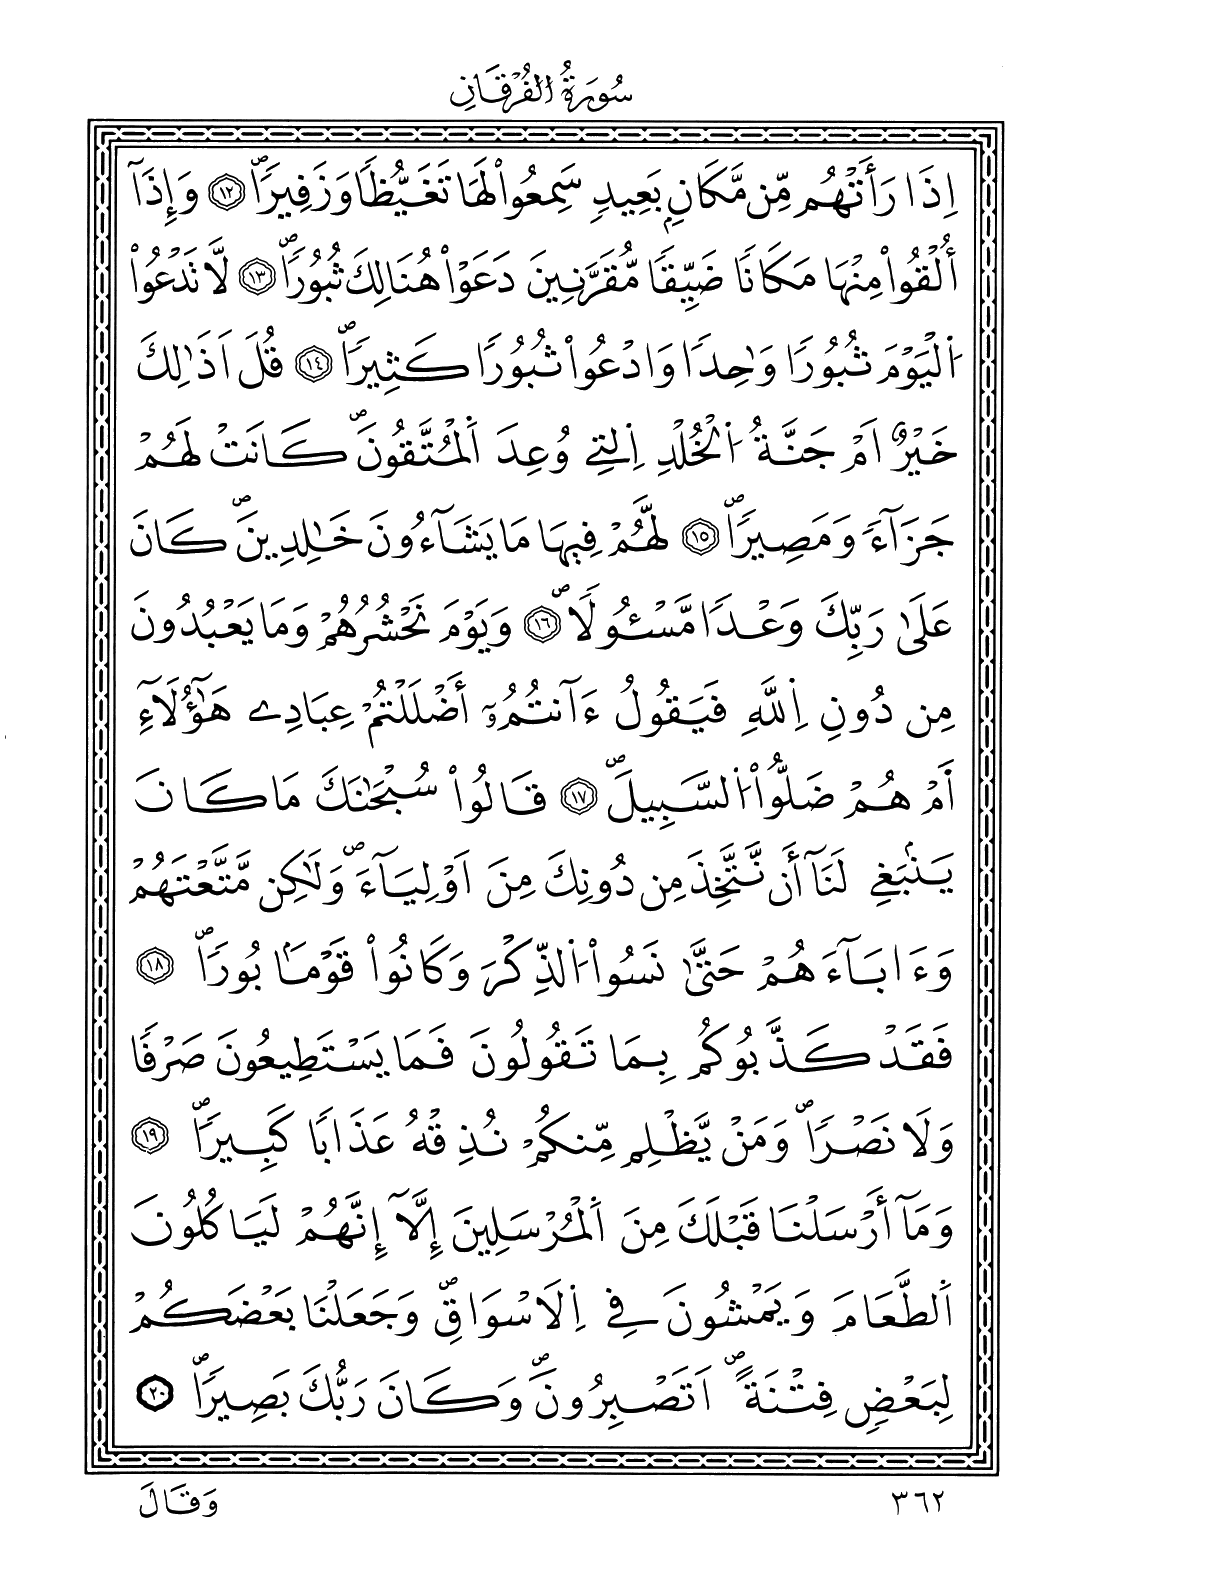 سُورَةُ الفُرْقَانِ
اِذَا رَأَتْهُم مِّن مَّكَانِۢ بَعِيدٖ سَمِعُواْ لَهَا تَغَيُّظاٗ وَزَفِيراٗۖ ١٢ وَإِذَآ
أُلْقُواْ مِنْهَا مَكَاناٗ ضَيِّقاٗ مُّقَرَّنِينَ دَعَوْاْ هُنَالِكَ ثُبُوراٗۖ ١٣ لَّا تَدْعُواْ
اُ۬لْيَوْمَ ثُبُوراٗ وَٰحِداٗ وَادْعُواْ ثُبُوراٗ كَثِيراٗۖ ١٤ قُلَ اَذَٰلِكَ
خَيْرٌ اَمْ جَنَّةُ اُ۬لْخُلْدِ اِ۬لتِے وُعِدَ اَ۬لْمُتَّقُونَۖ كَانَتْ لَهُمْ
جَزَآءٗ وَمَصِيراٗۖ ١٥ لَّهُمْ فِيهَا مَا يَشَآءُونَ خَٰلِدِينَۖ كَانَ
عَلَىٰ رَبِّكَ وَعْداٗ مَّسْـُٔولاٗۖ ١٦ وَيَوْمَ نَحْشُرُهُمْ وَمَا يَعْبُدُونَ
مِن دُونِ اِ۬للَّهِ فَيَقُولُ ءَآنتُمُۥٓ أَضْلَلْتُمْ عِبَادِے هَٰٓؤُلَآءِ
أَمْ هُمْ ضَلُّواْ اُ۬لسَّبِيلَۖ ١٧ قَالُواْ سُبْحَٰنَكَ مَا كَانَ
يَنۢبَغِے لَنَآ أَن نَّتَّخِذَ مِن دُونِكَ مِنَ اَوْلِيَآءَۖ وَلَٰكِن مَّتَّعْتَهُمْ
وَءَابَآءَهُمْ حَتَّىٰ نَسُواْ اُ۬لذِّكْرَ وَكَانُواْ قَوْماَۢ بُوراٗۖ ١٨
فَقَدْ كَذَّبُوكُم بِمَا تَقُولُونَ فَمَا يَسْتَطِيعُونَ صَرْفاٗ
وَلَا نَصْراٗۖ وَمَنْ يَّظْلِم مِّنكُمْ نُذِقْهُ عَذَاباٗ كَبِيراٗۖ ١٩
وَمَآ أَرْسَلْنَا قَبْلَكَ مِنَ اَ۬لْمُرْسَلِينَ إِلَّآ إِنَّهُمْ لَيَاكُلُونَ
اَ۬لطَّعَامَ وَيَمْشُونَ فِے اِ۬لَاسْوَاقِۖ وَجَعَلْنَا بَعْضَكُمْ
لِبَعْضٖ فِتْنَةًۖ اَتَصْبِرُونَۖ وَكَانَ رَبُّكَ بَصِيراٗۖ ٢٠
٣٦٢ وَقَالَ